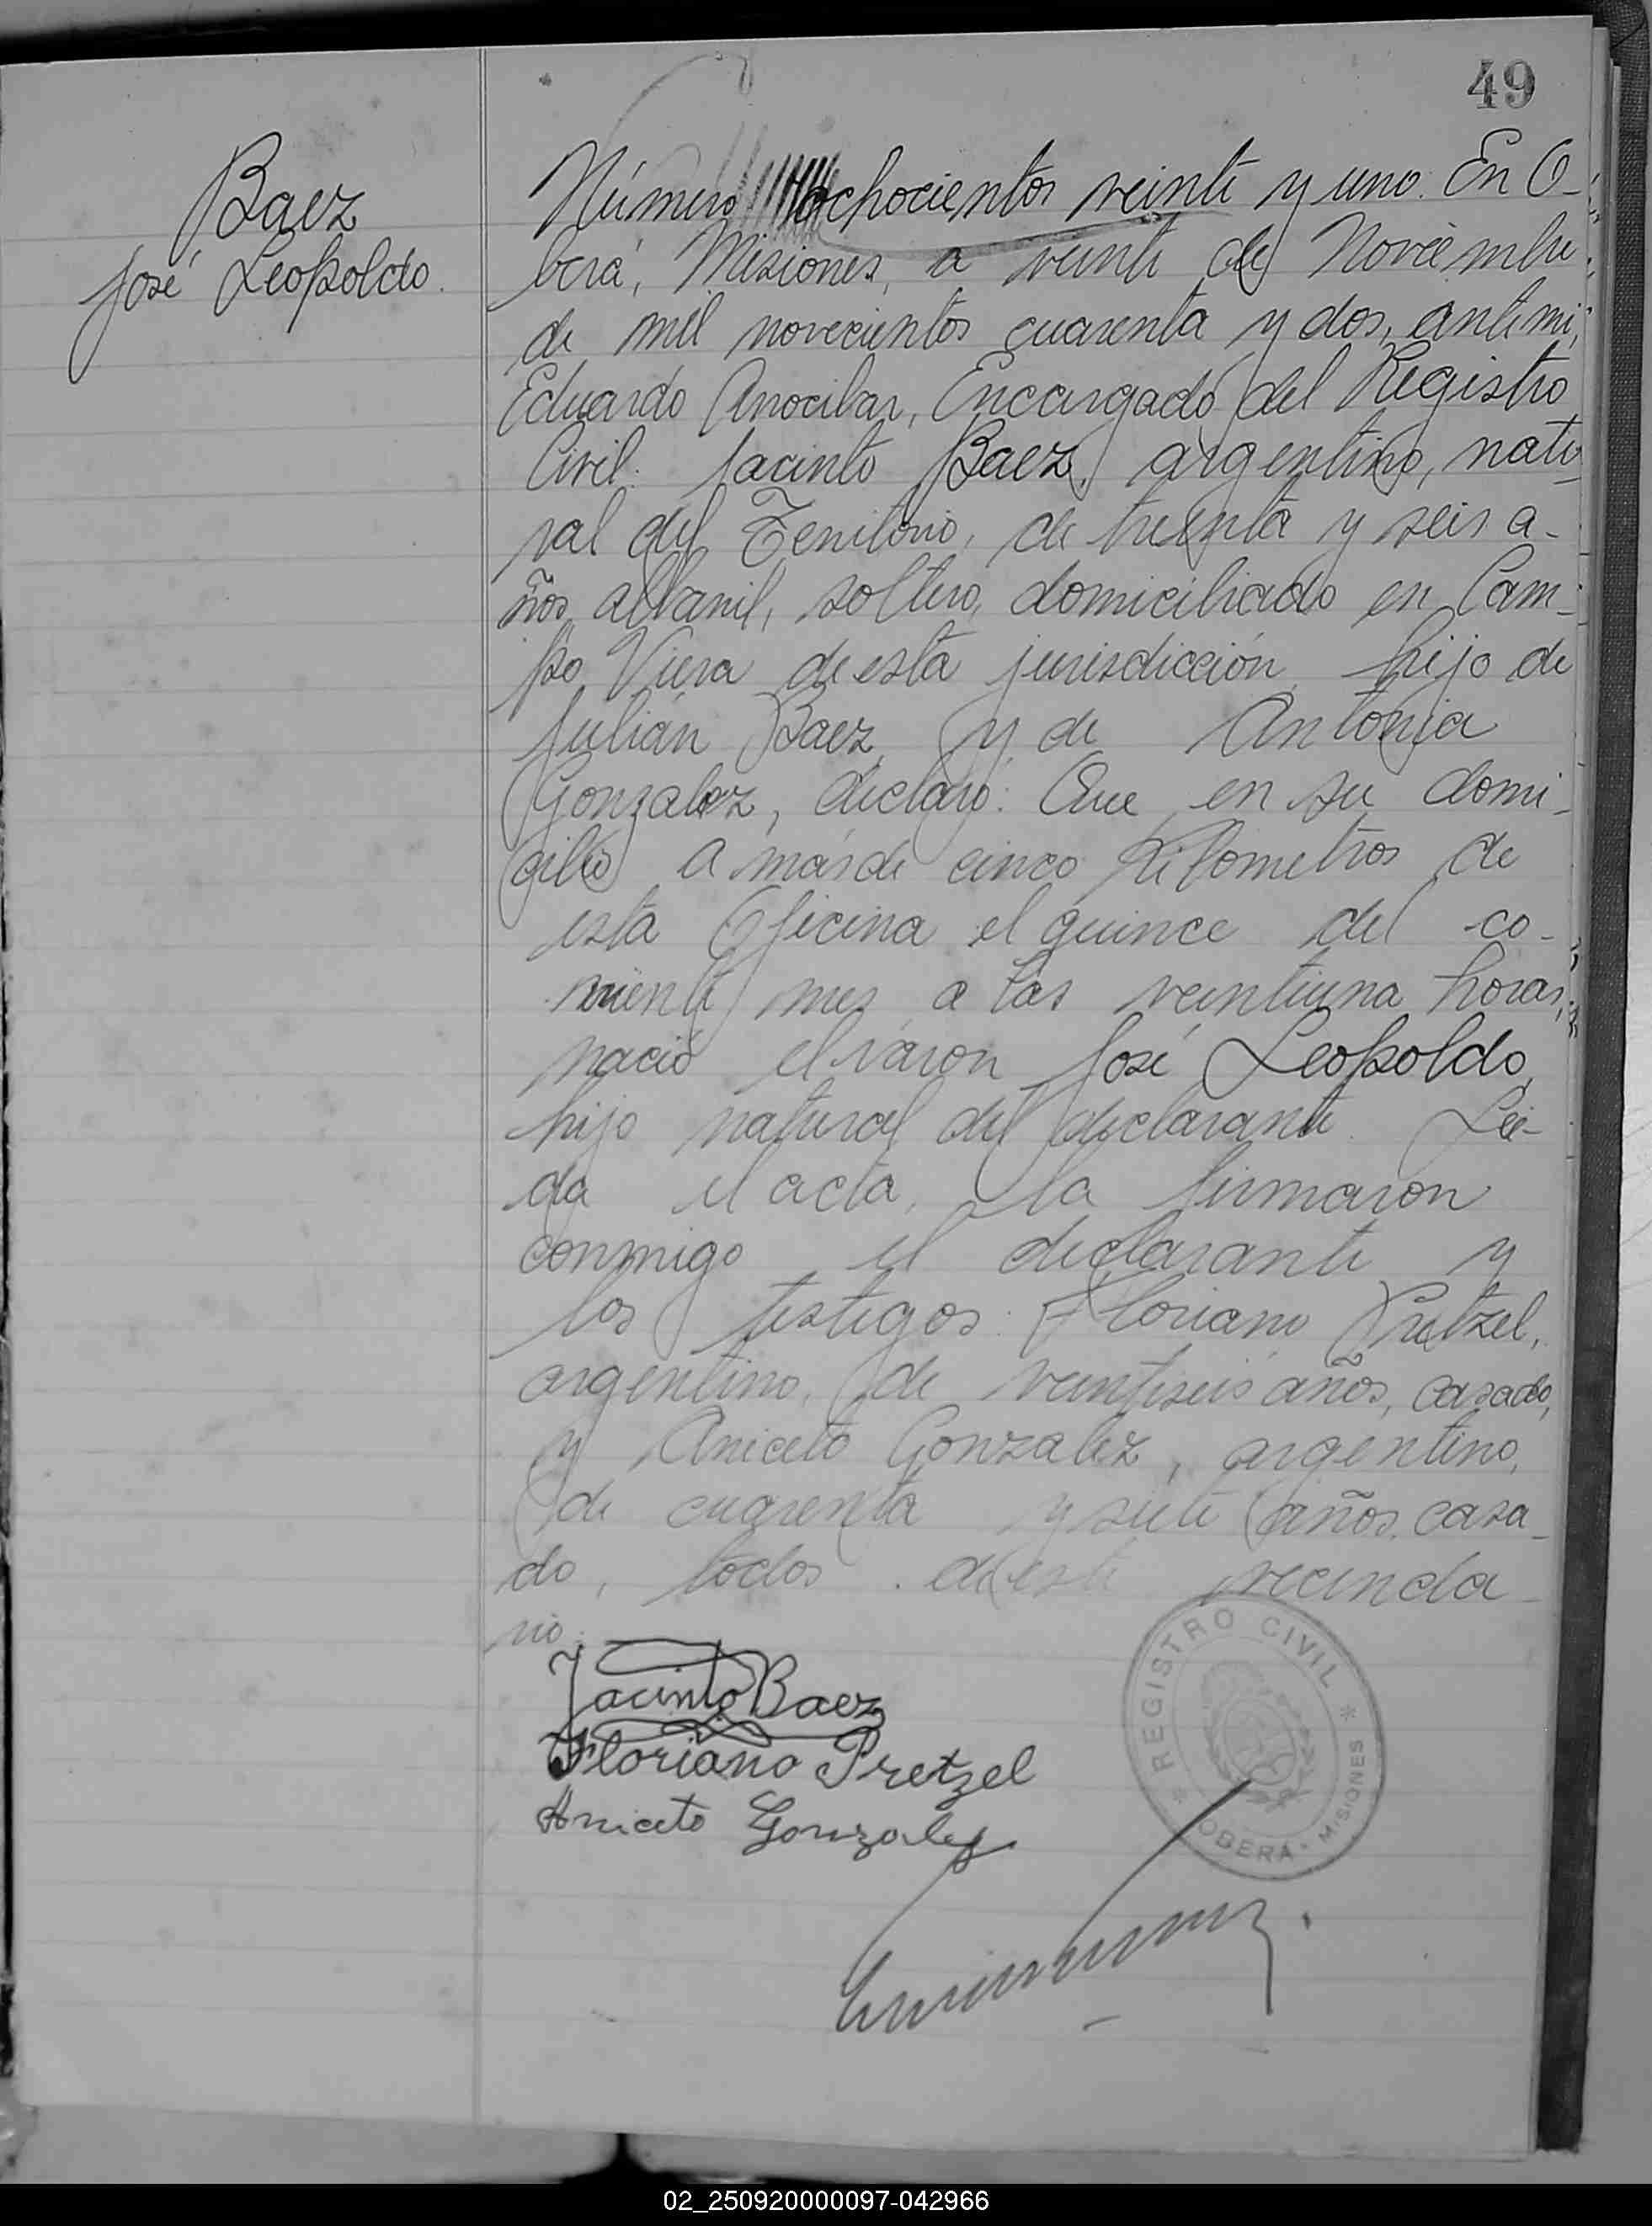 49
Baez
José Leopoldo.
Número ochocientos veinte y uno. En O-
berá, Misiones, a veinte de Noviembre
de mil novecientos cuarenta y dos, ante mi,
Eduardo Anocibar, Encargado del Registro
Civil: Jacinto Baez, argentino, natu-
ral del Territorio, de treinta y seis a-
ños, albañil, soltero, domiciliado en Cam-
po Viera de esta jurisdicción, hijo de
Julián Baez y de Antonia
Gonzalez, declaró: Que en su domi-
cilio a más de cinco Kilometros de
esta Oficina el quince del co-
rriente mes a las veintiuna horas,
nació el varon José Leopoldo,
hijo natural del declarante. Leí-
da el acta, la firmaron
conmigo el declarante y
los testigos: Floriano Pretzel,
argentino, de veintiseis años, casado,
y Aniceto Gonzalez, argentino,
de cuarenta y siete años, casa-
do, todos de este vecinda-
rio.
Jacinto Baez
Floriano Pretzel
Aniceto Gonzalez
REGISTRO CIVIL
* OBERÁ - MISIONES *
02_250920000097-042966